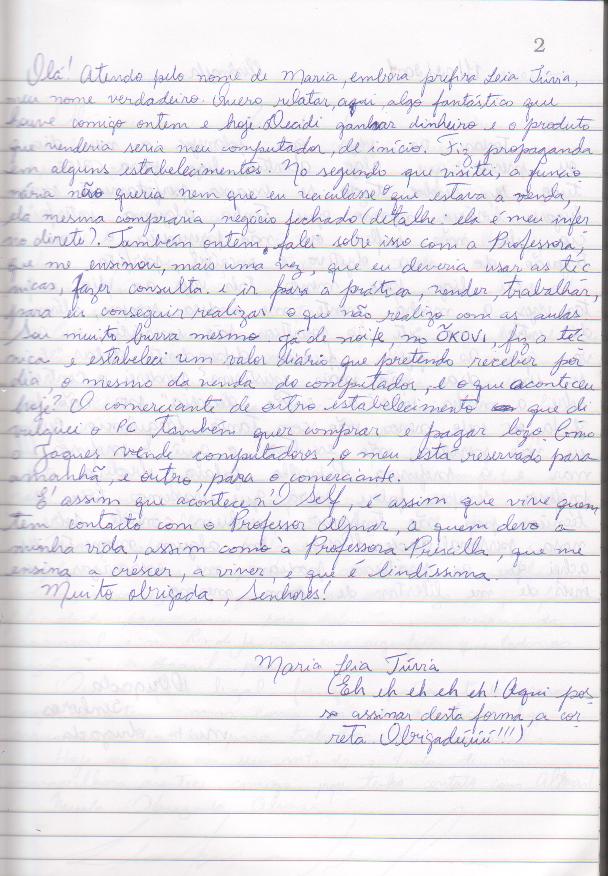 2
Olá! Atendo pelo nome de Maria, embora prefira Leia Túrria,
meu nome verdadeiro. Quero relatar, aqui, algo fantástico que
houve comigo ontem e hoje. Decidi ganhar dinheiro e o produto
que venderia seria meu computador, de início. Fiz propaganda
em alguns estabelecimentos. No segundo que visitei, a funcio
nária não queria nem que eu veiculasse o que estava a venda,
ela mesma compraria, negócio fechado (detalhe: ela é meu infer
no direto). Também ontem, falei sobre isso com a Professora,
que me ensinou, mais uma vez, que eu deveria usar as téc
nicas, fazer consulta e ir para a prática, vender, trabalhar,
para eu conseguir realizar o que não realizo com as aulas.
Sou muito burra mesmo. Já de noite, no ÕKOVI, fiz a téc
nica e estabeleci um valor diário que pretendo receber por
dia, o mesmo da venda do computador, e o que aconteceu
hoje? O comerciante de outro estabelecimento que di
vulguei o PC também quer comprar e pagar logo. Como
o Jaques vende computadores, o meu está reservado para
amanhã, e outro, para o comerciante.
É assim que acontece n'O Self, é assim que vive quem
tem contacto com o Professor Almar, a quem devo a
minha vida, assim como à Professora Priscilla, que me
ensina a crescer, a viver, e que é lindíssima.
Muito obrigada, Senhores!
Maria Leia Túrria
(Eh eh eh eh eh! Aqui pos-
so assinar desta forma, a cor
reta. Obrigadúúúú!!!)